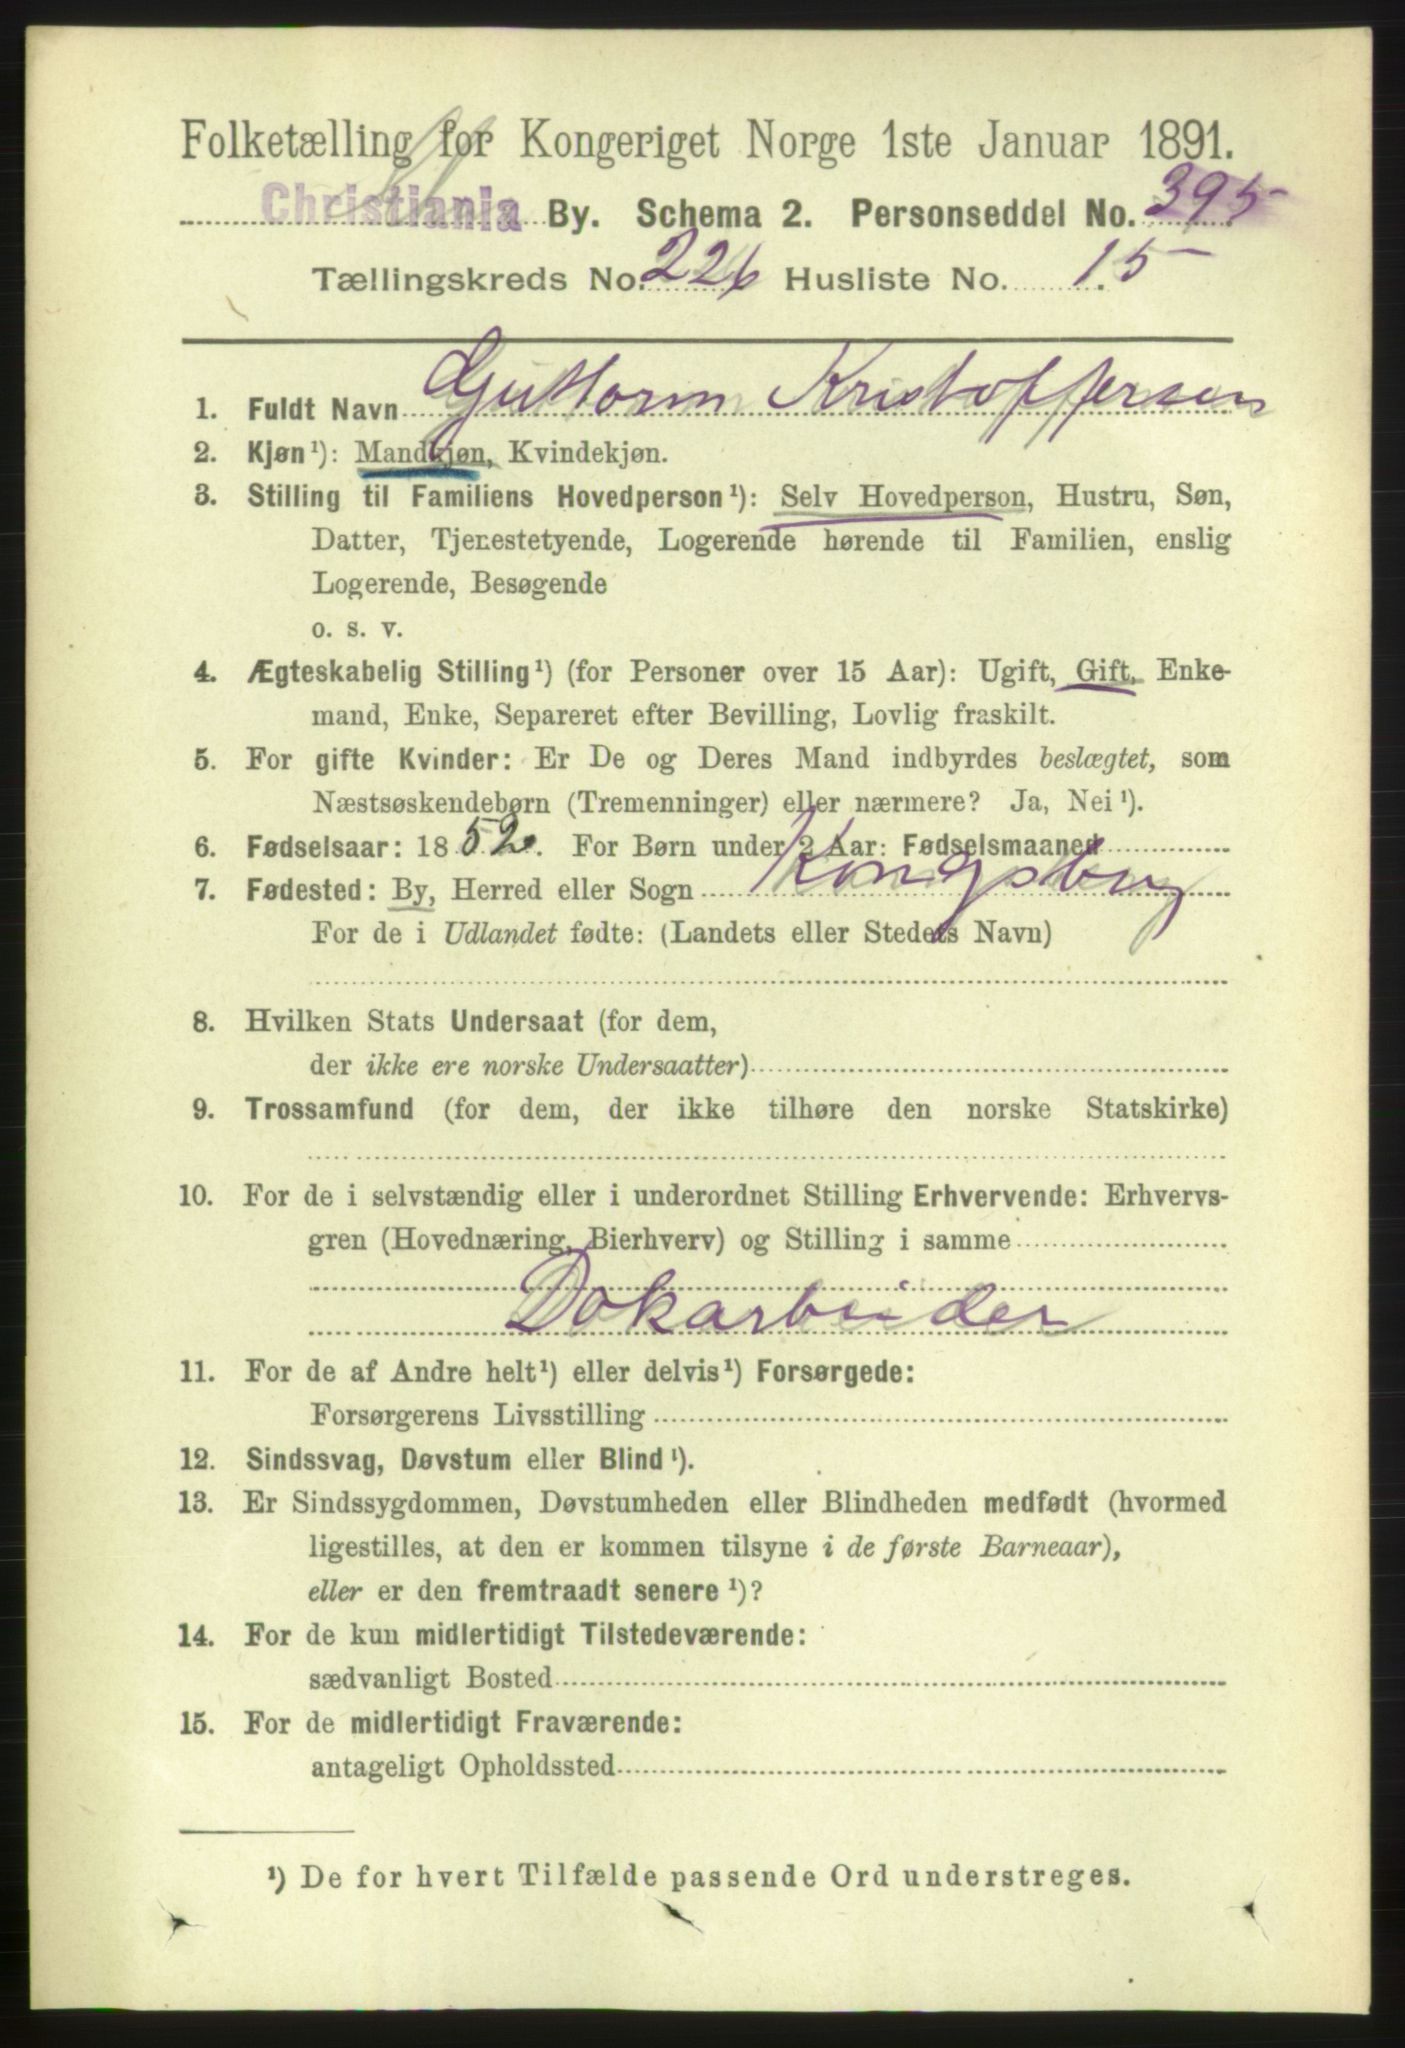 Folketælling for Kongeriget Norge 1ste Januar 1891.
Christiania By. Schema 2. Personseddel No. 395
Tællingskreds No. 226 Husliste No. 15
1. Fuldt Navn Guttorm Kristoffersen
2. Kjøn¹): Mandkjøn, Kvindekjøn.
3. Stilling til Familiens Hovedperson¹): Selv Hovedperson, Hustru, Søn,
Datter, Tjenestetyende, Logerende hørende til Familien, enslig
Logerende, Besøgende
o. s. v.
4. Ægteskabelig Stilling¹) (for Personer over 15 Aar): Ugift, Gift, Enke-
mand, Enke, Separeret efter Bevilling, Lovlig fraskilt.
5. For gifte Kvinder: Er De og Deres Mand indbyrdes beslægtet, som
Næstsøskendebørn (Tremenninger) eller nærmere? Ja, Nei¹).
6. Fødselsaar: 1852. For Børn under 2 Aar: Fødselsmaaned
7. Fødested: By, Herred eller Sogn Kongsberg
For de i Udlandet fødte: (Landets eller Stedets Navn)
8. Hvilken Stats Undersaat (for dem,
der ikke ere norske Undersaatter)
9. Trossamfund (for dem, der ikke tilhøre den norske Statskirke)
10. For de i selvstændig eller i underordnet Stilling Erhvervende: Erhvervs-
gren (Hovednæring, Bierhverv) og Stilling i samme
Dokarbeider
11. For de af Andre helt¹) eller delvis¹) Forsørgede:
Forsørgerens Livsstilling
12. Sindssvag, Døvstum eller Blind¹).
13. Er Sindssygdommen, Døvstumheden eller Blindheden medfødt (hvormed
ligestilles, at den er kommen tilsyne i de første Barneaar),
eller er den fremtraadt senere¹)?
14. For de kun midlertidigt Tilstedeværende:
sædvanligt Bosted
15. For de midlertidigt Fraværende:
antageligt Opholdssted
¹) De for hvert Tilfælde passende Ord understreges.